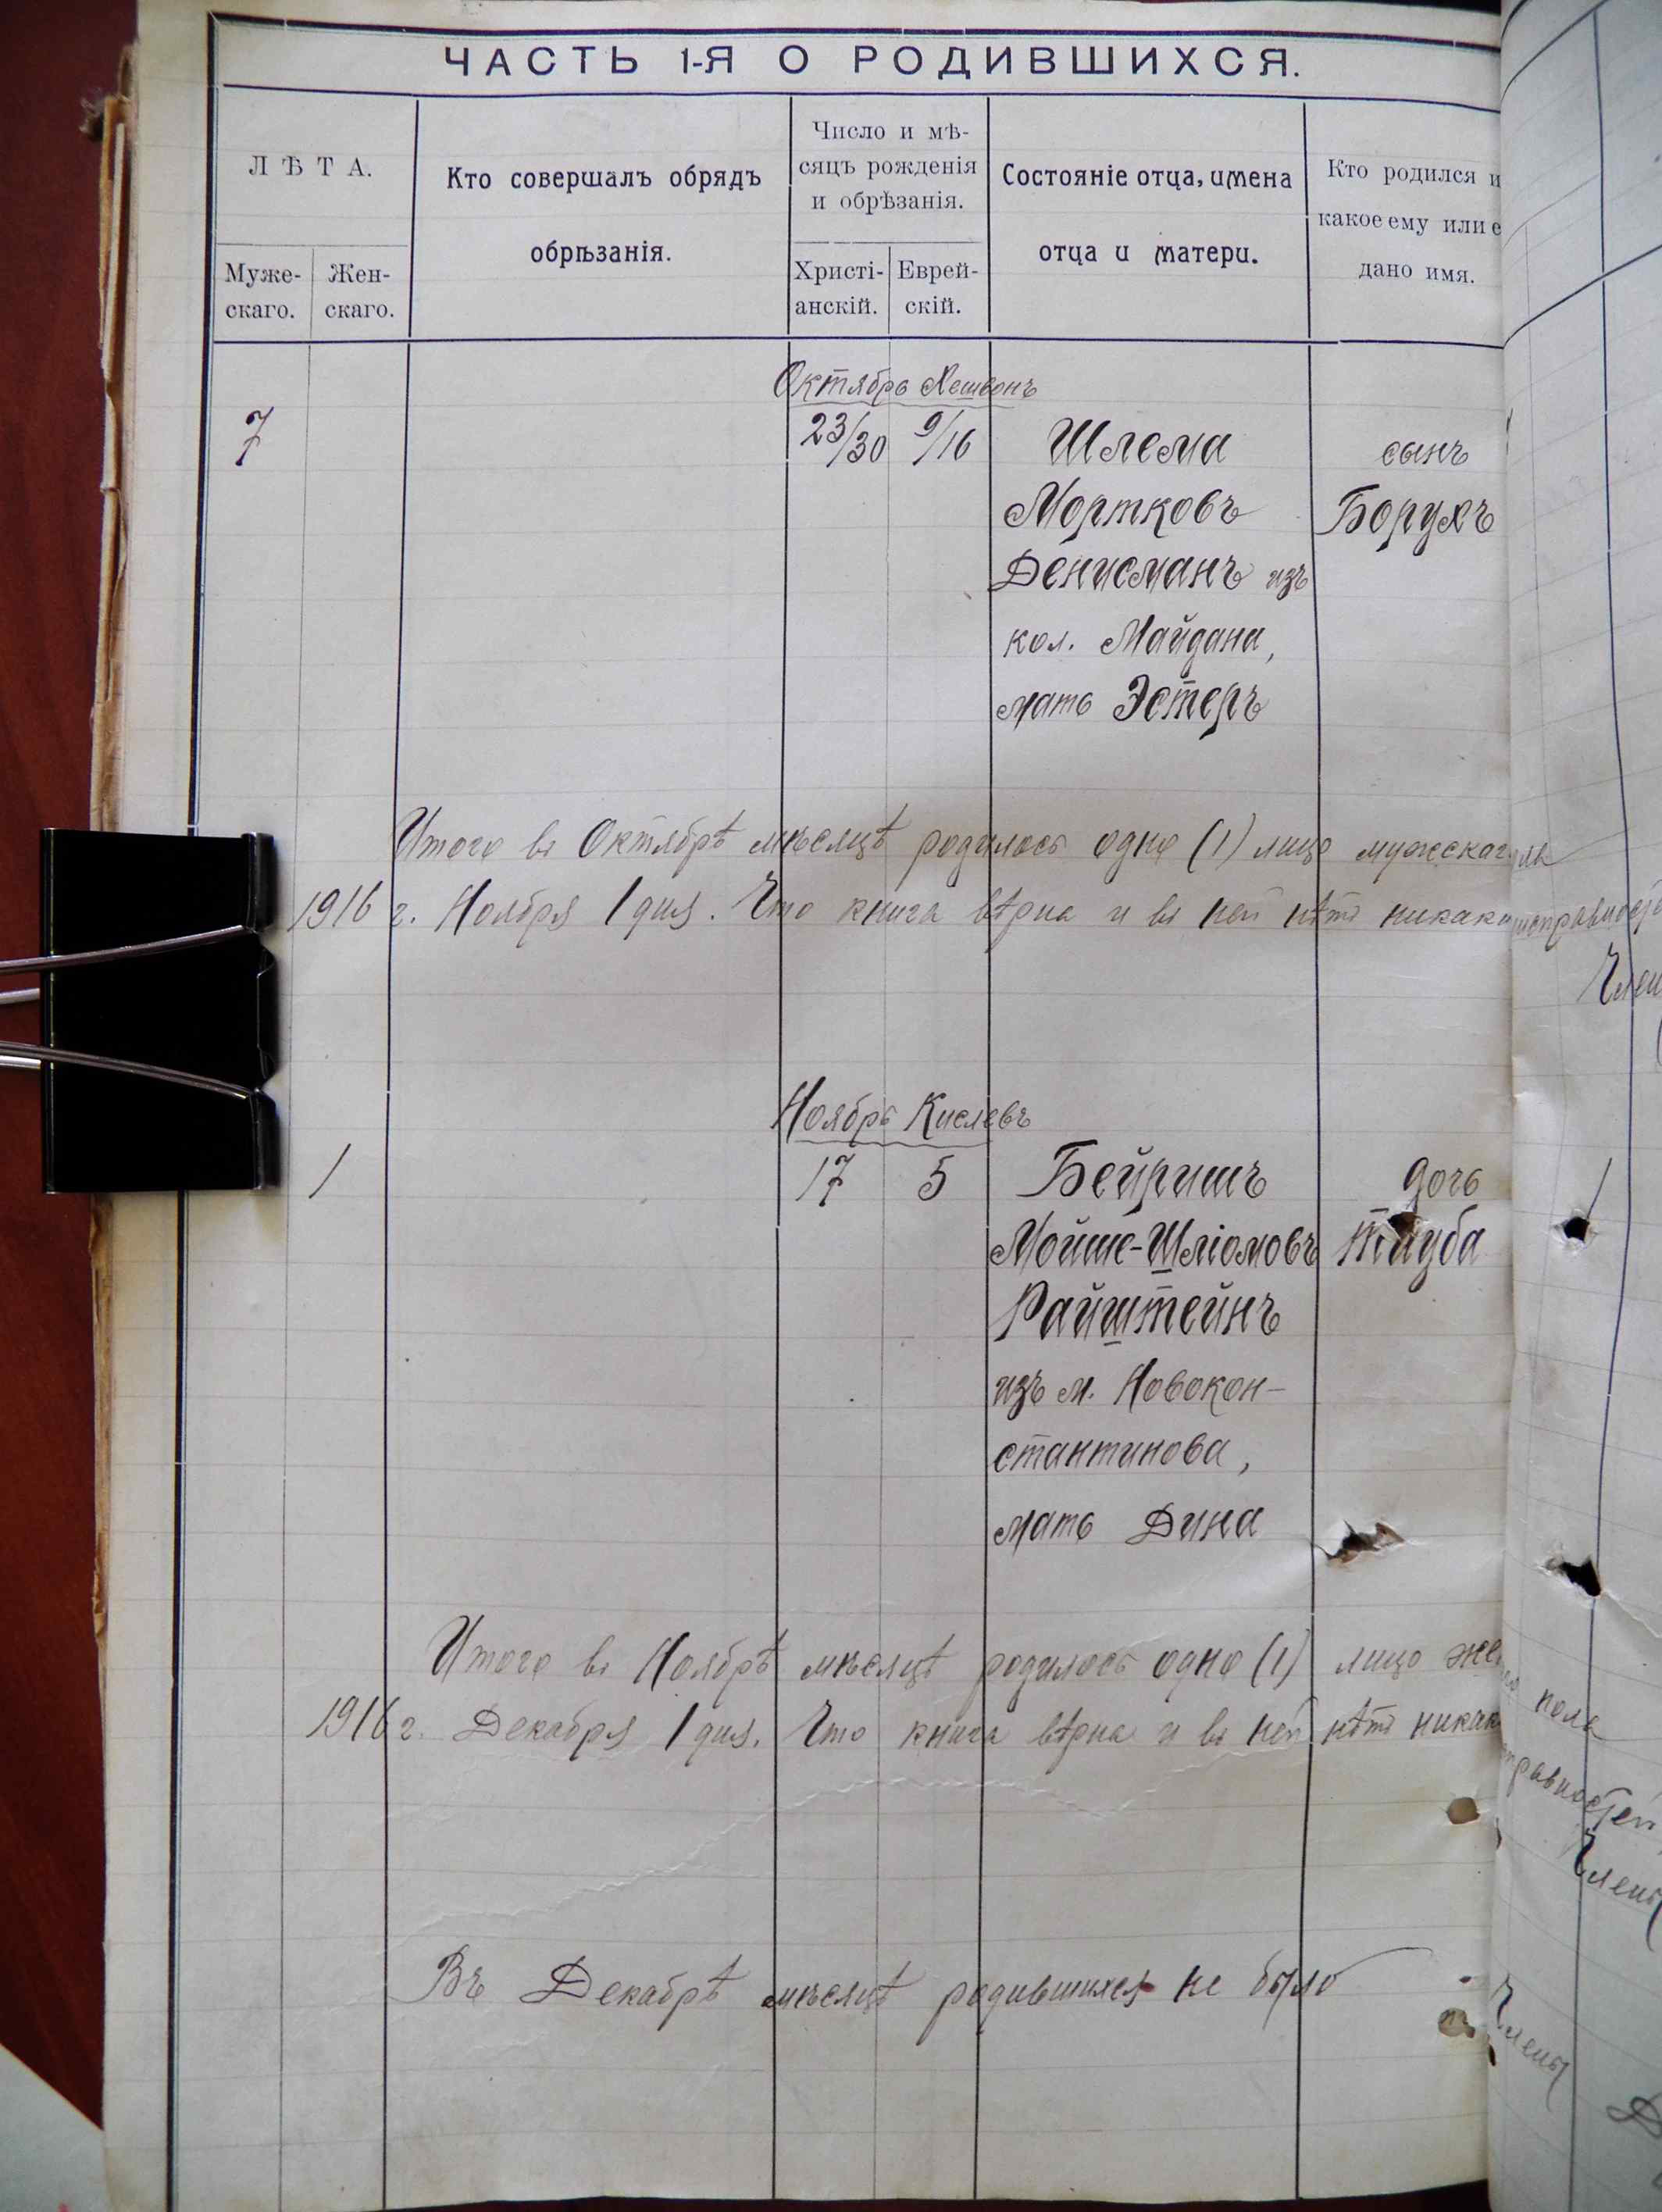 ЧАСТЬ 1-Я О РОДИВШИХСЯ.
ЛѢТА.
Муже-
скаго.
Жен-
скаго.
Кто совершалъ обрядъ
обрѣзанія.
Число и мѣ-
сяцъ рожденія
и обрѣзанія.
Христі-
анскій.
Еврей-
скій.
Состояніе отца, имена
отца и матери.
Кто родился и
какое ему или е
дано имя.
Октябрь Хешвонъ
7 23/30 9/16 Шлема сынъ
Мортковъ Борухъ
Денисманъ изъ
кол. Майдана,
мать Эстеръ
Итого въ Октябрѣ мѣсяцѣ родилось одно (1) лицо мужескаг
1916 г. Ноября 1 дня. Что книга вѣрна и въ ней нѣтъ никаки исправностей
Члены
Ноябрь Кислевъ
1 17 5 Бейришъ дочь
Мойше-Шліомовъ Тауба
Райштейнъ
изъ м. Новокон-
стантинова,
мать Дина
Итого въ Ноябрѣ мѣсяцѣ родилось одно (1) лицо жен пола
1916 г. Декабря 1 дня. Что книга вѣрна и въ ней нѣтъ никак правностей
Члены
Въ Декабрѣ мѣсяцѣ родившихся не было
Члены